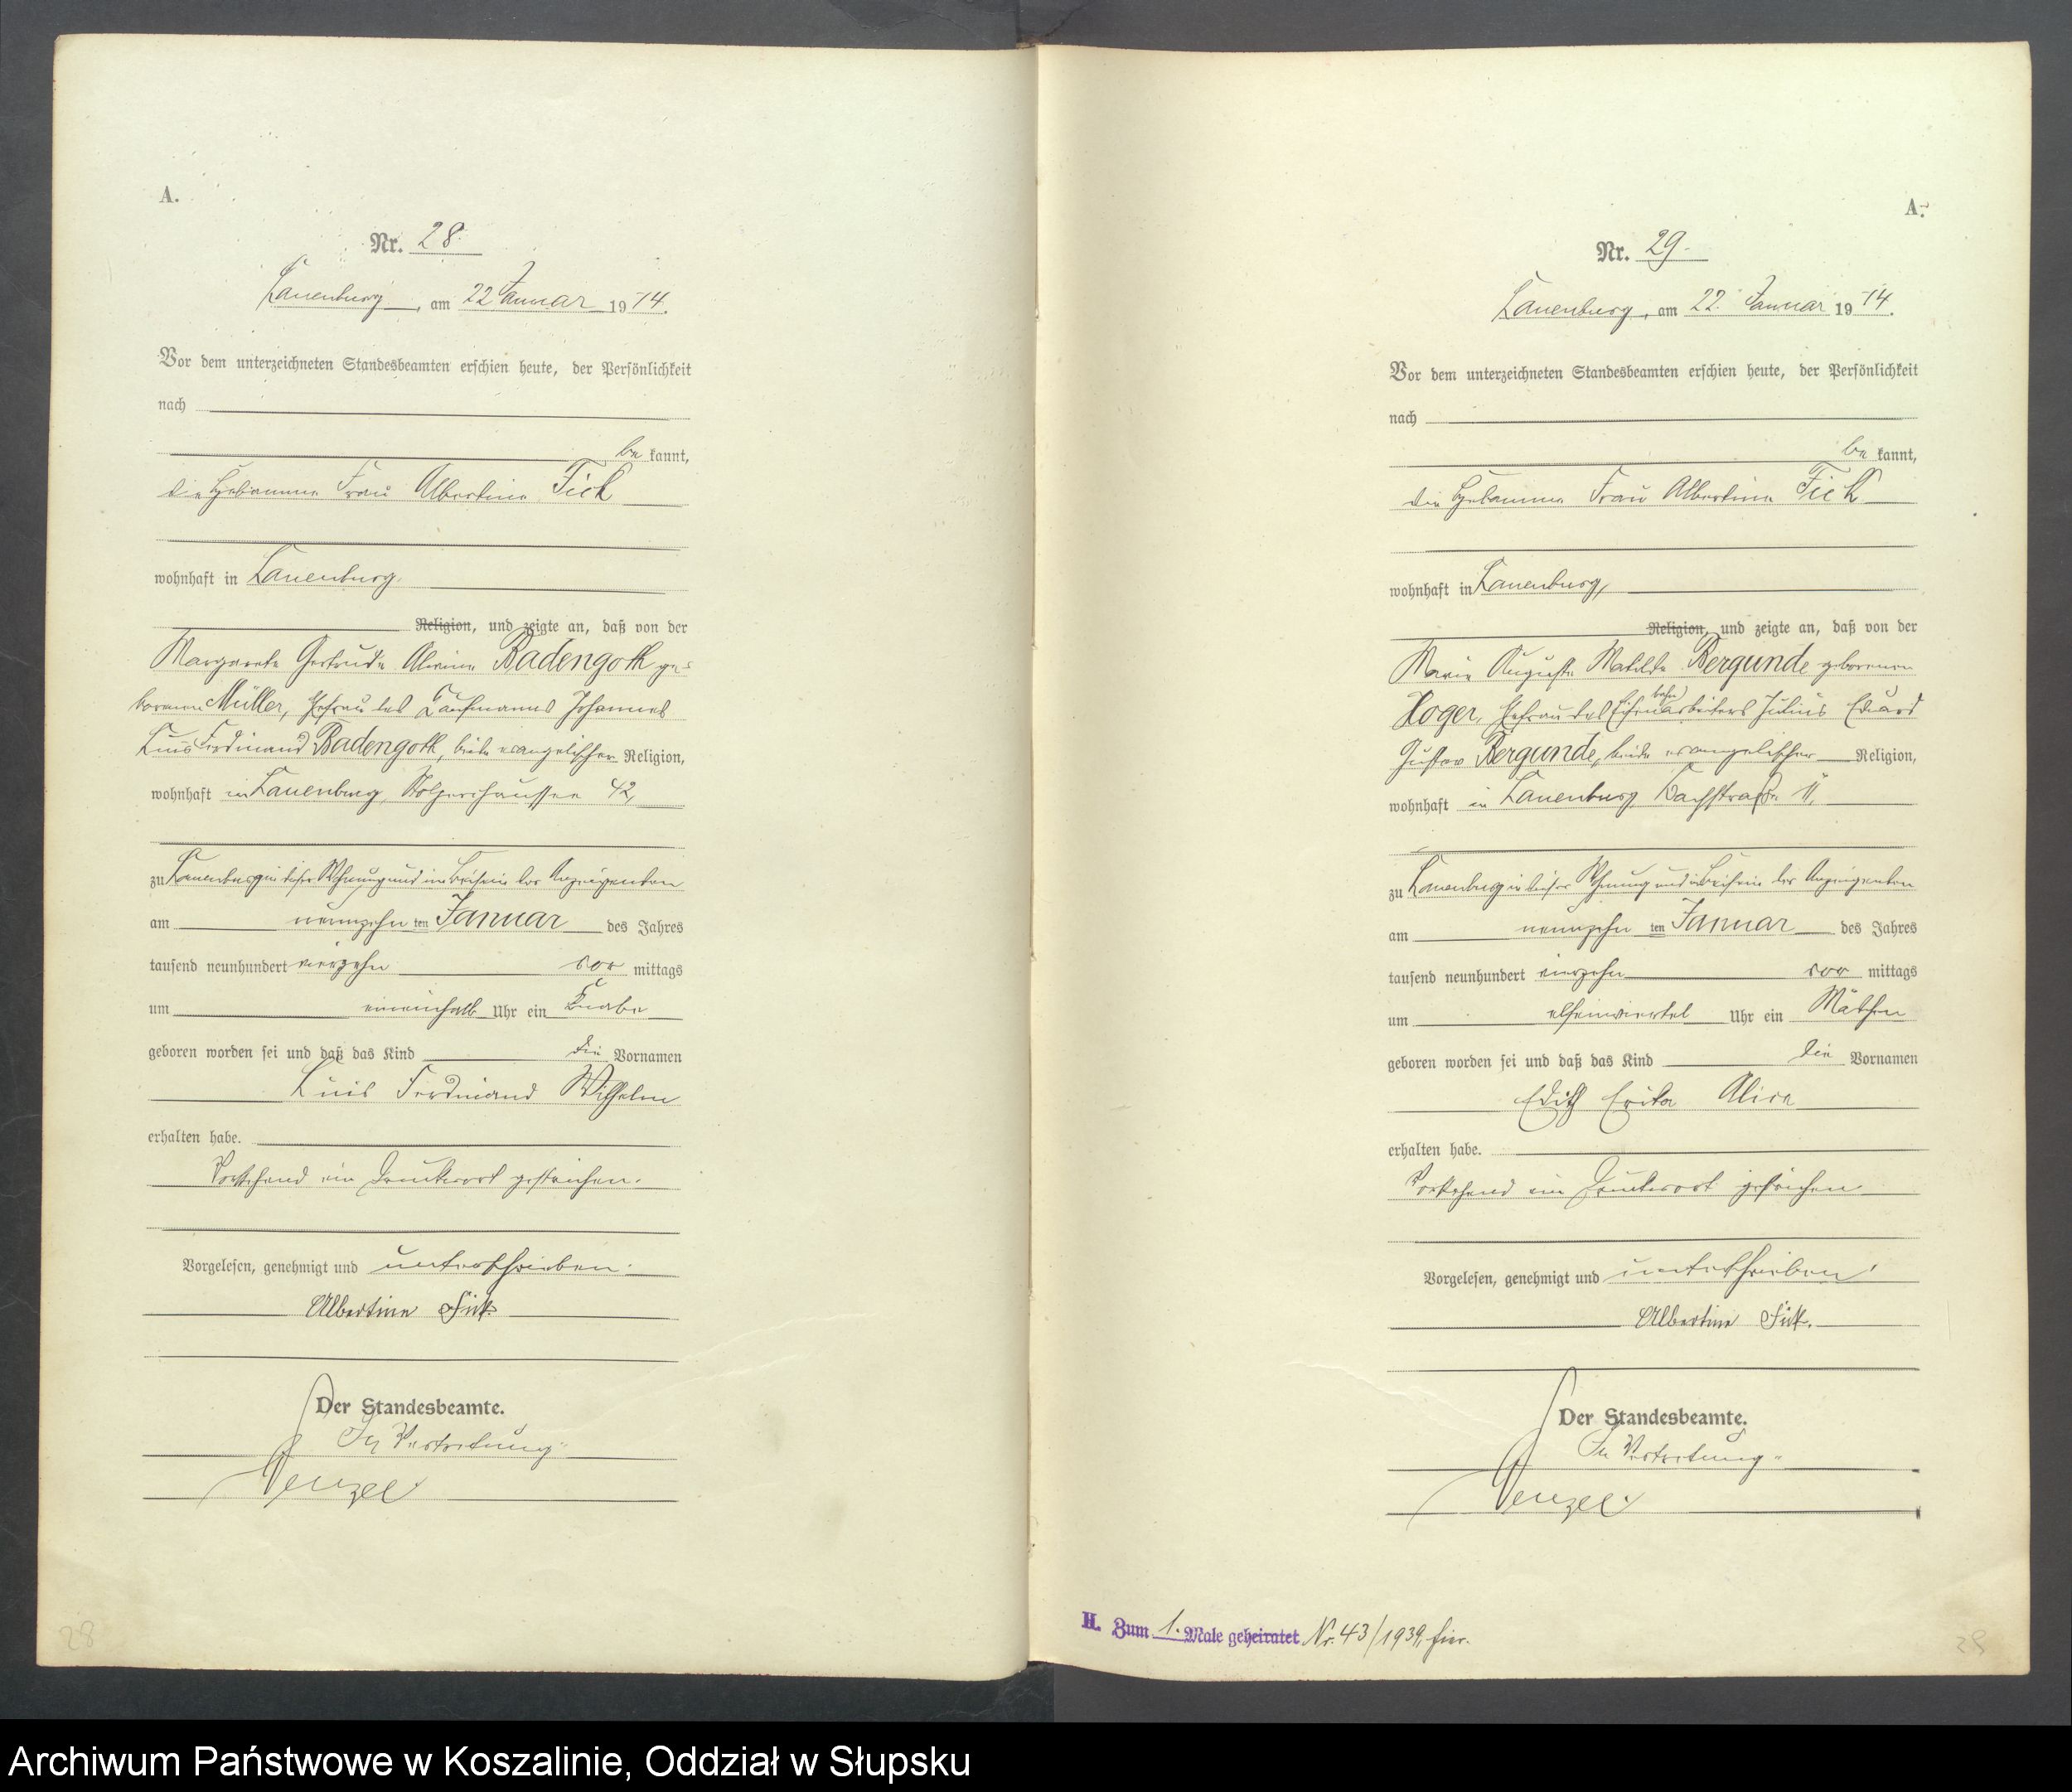 A.
Nr. 28.
Lauenburg, am 22 Januar 1914.
Vor dem unterzeichneten Standesbeamten erschien heute, der Persönlichkeit
nach
be kannt,
die Hebamme Frau Albertine Fick
wohnhaft in Lauenburg,
Religion, und zeigte an, daß von der
Margarete Gertrude Alwine Badengoth ge=
borenen Müller, Ehefrau des Kaufmanns Johannes
Luis Ferdinand Badengoth, beide evangelischer Religion,
wohnhaft in Lauenburg, Stolperchaussee 42,
zu Lauenburg in dieser Wohnung und im Beisein der Anzeigenden
am neunzehn ten Januar des Jahres
tausend neunhundert vierzehn vor mittags
um eineinhalb Uhr ein Knabe
geboren worden sei und daß das Kind die Vornamen
Luis Ferdinand Wilhelm
erhalten habe.
Vorstehend ein Druckwort gestrichen.
Vorgelesen, genehmigt und unterschrieben.
Albertine Fick.
Der Standesbeamte.
In Vertretung.
Wenzel
28
A.
Nr. 29.
Lauenburg, am 22. Januar 1914.
Vor dem unterzeichneten Standesbeamten erschien heute, der Persönlichkeit
nach
be kannt,
die Hebamme Frau Albertine Fick
wohnhaft in Lauenburg,
Religion, und zeigte an, daß von der
Marie Auguste Matilde Bergunde geborenen
Koger, Ehefrau des Eisenbahnarbeiters Julius Eduard
Gustav Bergunde, beide evangelischer Religion,
wohnhaft in Lauenburg, Bachstraße 11,
zu Lauenburg in dieser Wohnung und im Beisein der Anzeigenden
am neunzehn ten Januar des Jahres
tausend neunhundert vierzehn vor mittags
um elfeinviertel Uhr ein Mädchen
geboren worden sei und daß das Kind die Vornamen
Edith Erika Alice
erhalten habe.
Vorstehend ein Druckwort gestrichen
Vorgelesen, genehmigt und unterschrieben.
Albertine Fick.
Der Standesbeamte.
In Vertretung.
Wenzel
H. Zum 1. Male geheiratet Nr. 43/1939, hier.
Archiwum Państwowe w Koszalinie, Oddział w Słupsku